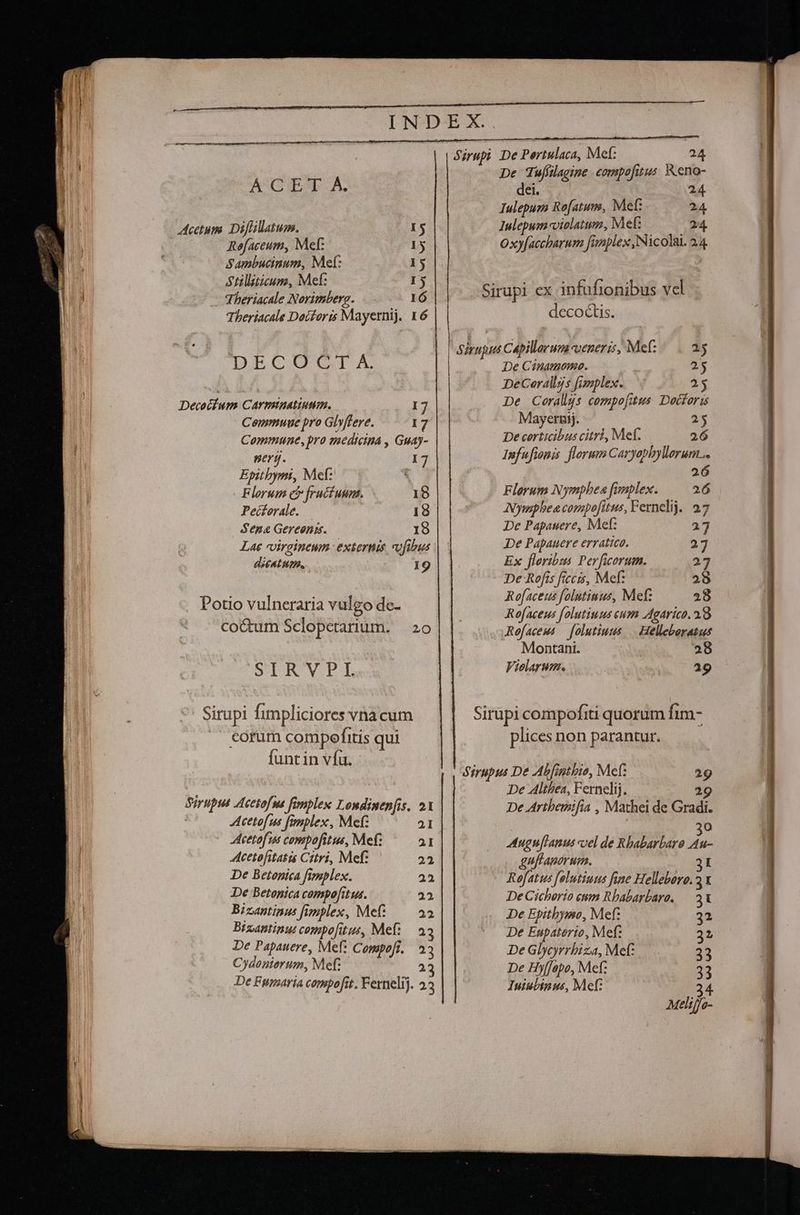 INDEX.
ACETA.
Acetum Distillatum. 15
Rosaceum, Mes: 15
Sambucinum, Mes: 15
Stilliticum, Mes: 15
Theriacale Norimberg. 16
Theriacale Doctoris Mayernij. 16
DECOCTA.
Decoctum Carminatiuum. 17
Commune pro Glystere. 17
Commune, pro medicina, Guay-
nerij. 17
Epithymi, Mes:
Florum & fructuum. 18
Pectorale. 18
Sena Gereonis. 18
Lac virgineum externis vsibus
dicatum. 19
Potio vulneraria vulgo de-
coctum Sclopetarium. 20
SIRVPI.
Sirupi simpliciores vna cum
eorum compositis qui
sunt in vsu.
Sirupus Acetosus simplex Londinensis. 21
Acetosus simplex, Mes: 21
Acetosus compositus, Mes: 21
Acetositatis Citri, Mes: 22
De Betonica simplex. 22
De Betonica compositus. 22
Bizantinus simplex, Mes: 22
Bizantinus compositus, Mes: 23
De Papauere, Mes: Compost. 23
Cydoniorum, Mes: 23
De Fumaria composit. Fernelij. 23
Sirupi De Portulaca, Mes: 24
De Tussilagine compositus Reno-
dei. 24
Iulepum Rosatum, Mes: 24
Iulepum violatum, Mes: 24
Oxysaccharum simplex, Nicolai. 24
Sirupi ex infusionibus vel
decoctis.
Sirupus Capillorum veneris, Mes: 25
De Cinamomo. 25
De Corallijs simplex. 25
De Corallijs compositus Doctoris
Mayernij. 25
De corticibus citri, Mes. 26
Infusionis florum Caryophyllorum.
26
Florum Nymphea simplex. 26
Nymphea compositus, Fernelij. 27
De Papauere, Mes: 27
De Papauere erratico. 27
Ex floribus Persicorum. 27
De Rosis siccis, Mes: 28
Rosaceus solutiuus, Mes: 28
Rosaceus solutiuus cum Agarico. 28
Rosaceus solutiuus Helleboratus
Montani. 28
Violarum. 29
Sirupi compositi quorum sim-
plices non parantur.
Sirupus De Absinthio, Mes: 29
De Althea, Fernelij. 29
De Arthemisia, Mathei de Gradi.
30
Augustanus vel de Rhabarbaro Au-
gustanorum. 31
Rosatus solutiuus sine Helleboro. 31
De Cichorio cum Rhabarbaro. 31
De Epithymo, Mes: 32
De Eupatorio, Mes: 32
De Glycyrrhiza, Mes: 33
De Hyssopo, Mes: 33
Iuiubinus, Mes: 34
Melisso-